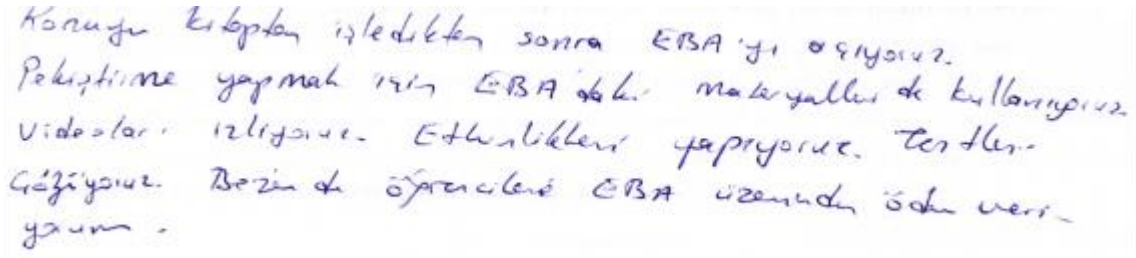 Konuyu kitaptan işledikten sonra EBA'yı açıyoruz.
Pekiştirme yapmak için EBA'daki materyalleri de kullanıyoruz.
Videoları izliyoruz. Etkinlikleri yapıyoruz. Testleri
Çözüyoruz. Bazen de öğrencilere EBA üzerinden ödev veri-
yorum.